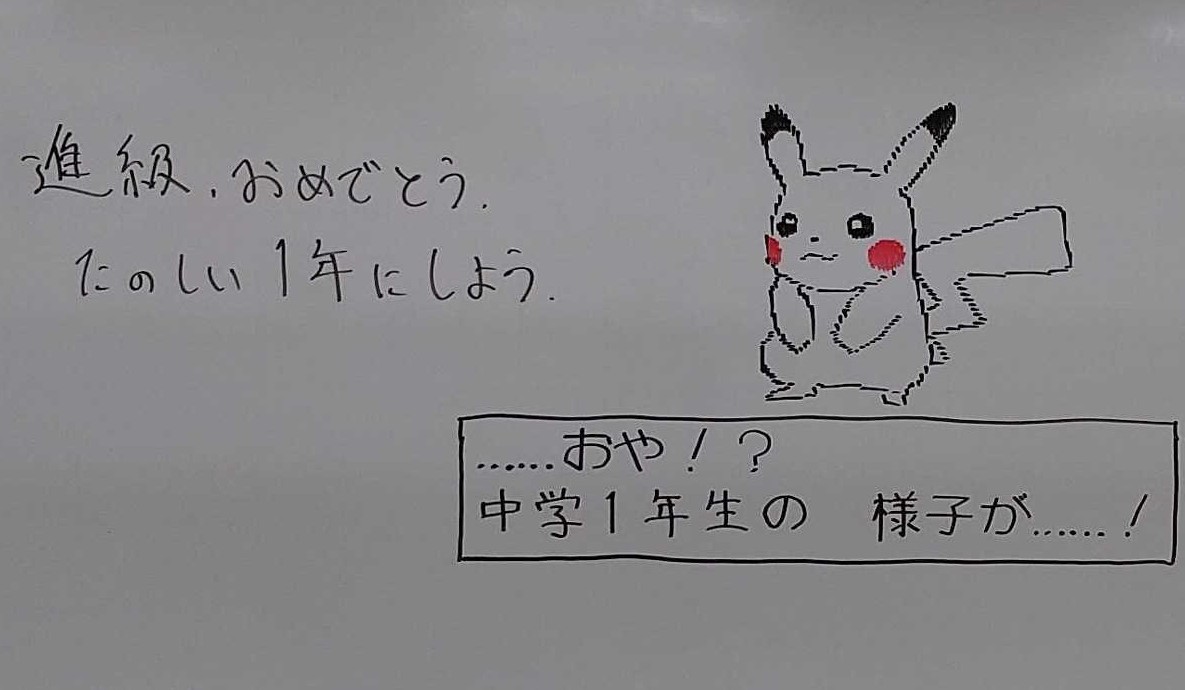 進級、おめでとう.
たのしい1年にしよう.
……おや！？
中学1年生の　様子が……！